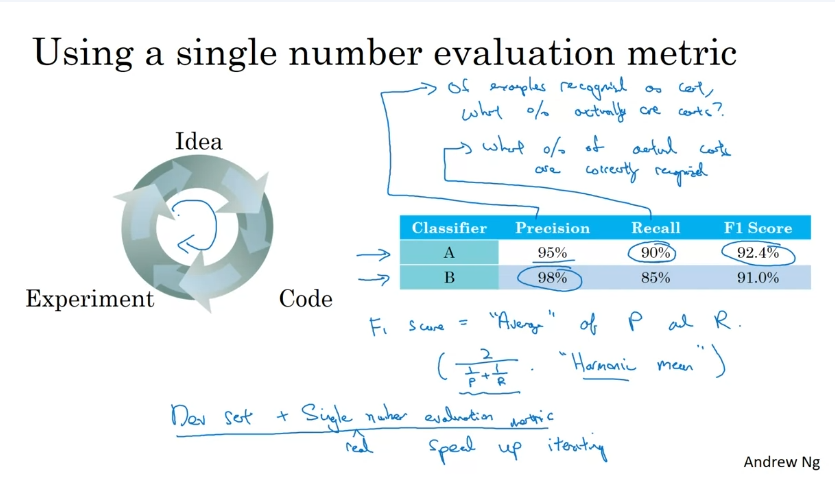 Using a single number evaluation metric
→ Of examples recognized as cat,
what % actually are cats?
→ what % of actual cats
are correctly recognized
Idea
Experiment
Code
Classifier Precision Recall F1 Score
→ A 95% 90% 92.4%
→ B 98% 85% 91.0%
F₁ score = "Average" of P and R.
( 2 / (1/P + 1/R) . "Harmonic mean" )
Dev set + Single number evaluation metric
real speed up iterating
Andrew Ng